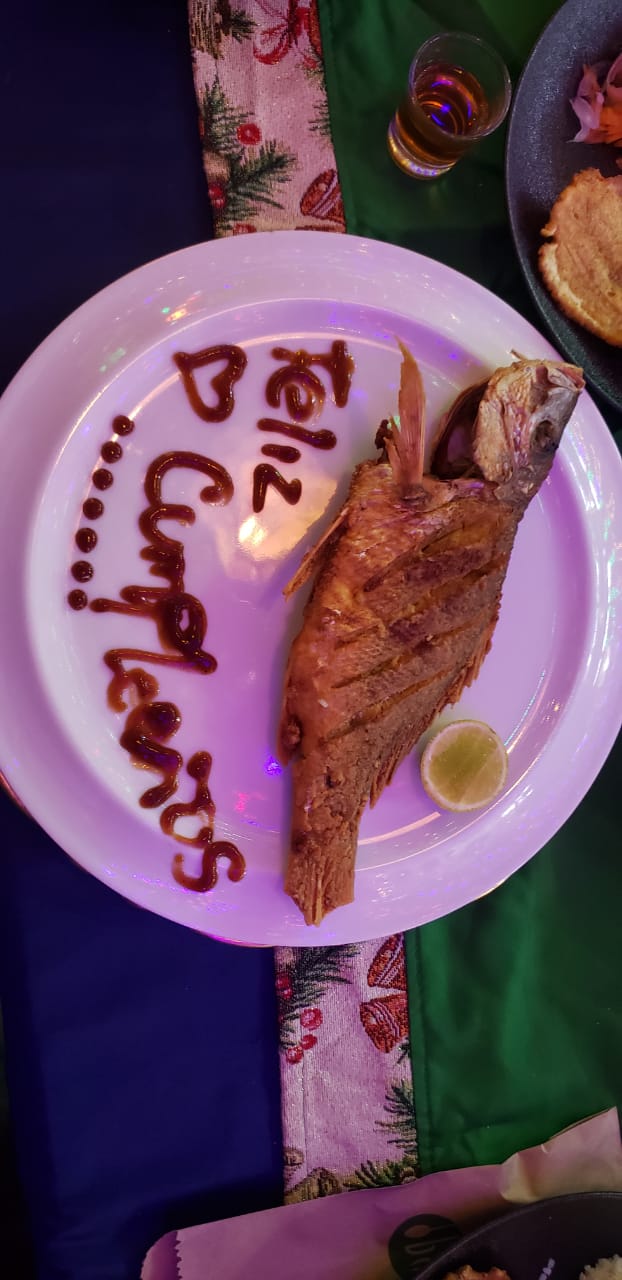 Feliz
Cumpleaños